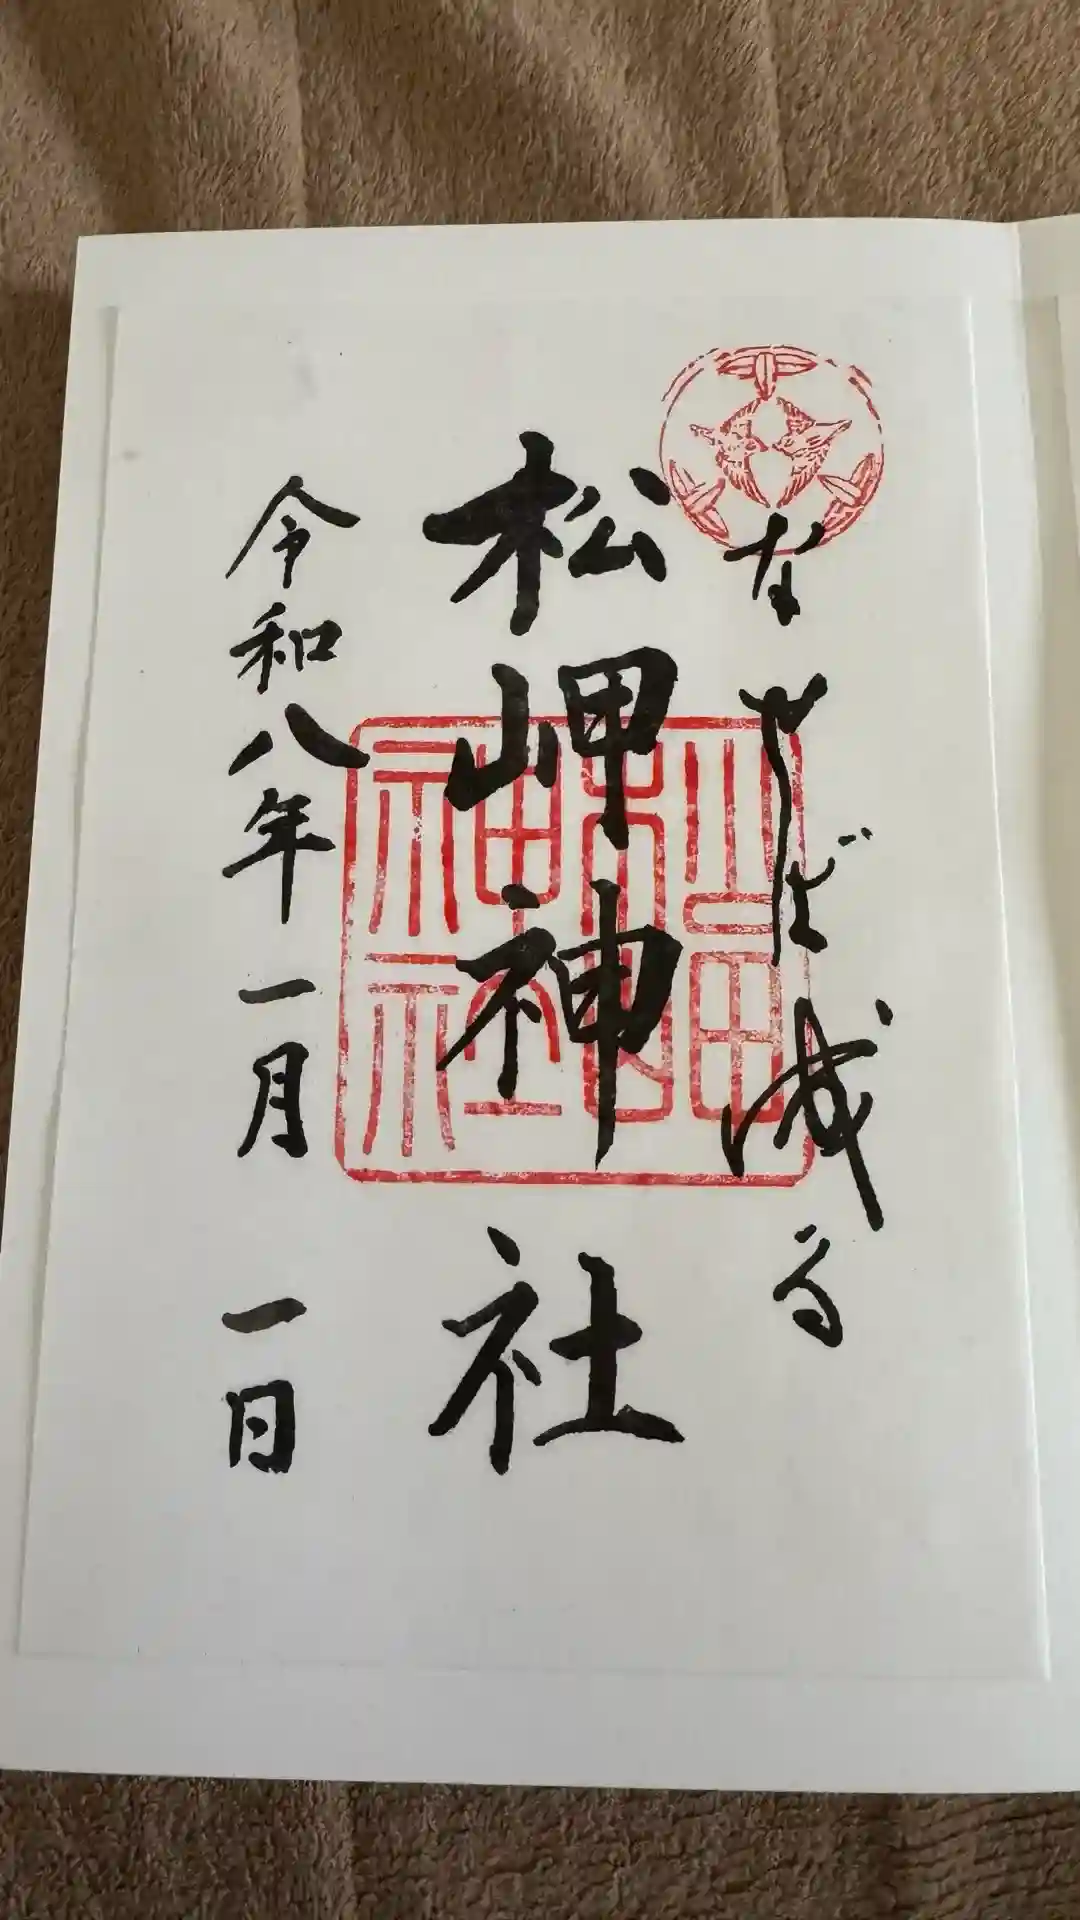 なせば成る
松岬神社
令和八年一月一日
松岬神社